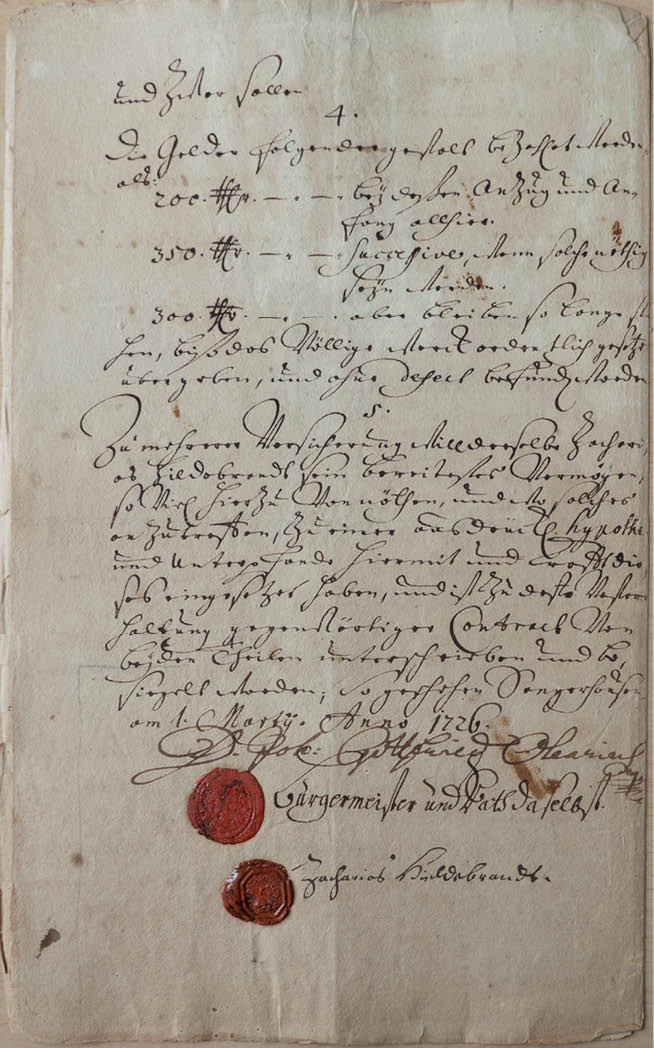 und Zitter sollen
4.
Die Gelder folgender gestalt bezahlet werden,
als:
200. thlr. — . — . bey deßen Anzug und An-
fang allhier.
350. thlr. — . — . successive, wenn solche nöthig
seyn werden.
300. thlr. — . — . aber bleiben so lange ste
hen, biß das Völlige Werck ordentlich gesetzt
übergeben, und ohne defect befunden worden
5.
Zu mehrerer Versicherung will derselbe Zachari,
as Hildebrandt sein bereitestes Vermögen,
so viel hierzu Von nöthen, und wo solches
anzutreffen, zu einer ausdrückl. hypothec
und Unterpfande hiermit und Krafft die,
ses eingesetzet haben, und ist zu desto Vester
haltung gegenwärtiger Contract Von
beyden Theilen unterschrieben und be,
siegelt worden, So geschehen Sangerhausen
am 1. Martij. Anno 1726.
D. Joh: Gottfried
Bürgermeister und Rath daselbst.
Zacharias Hildebrandt.